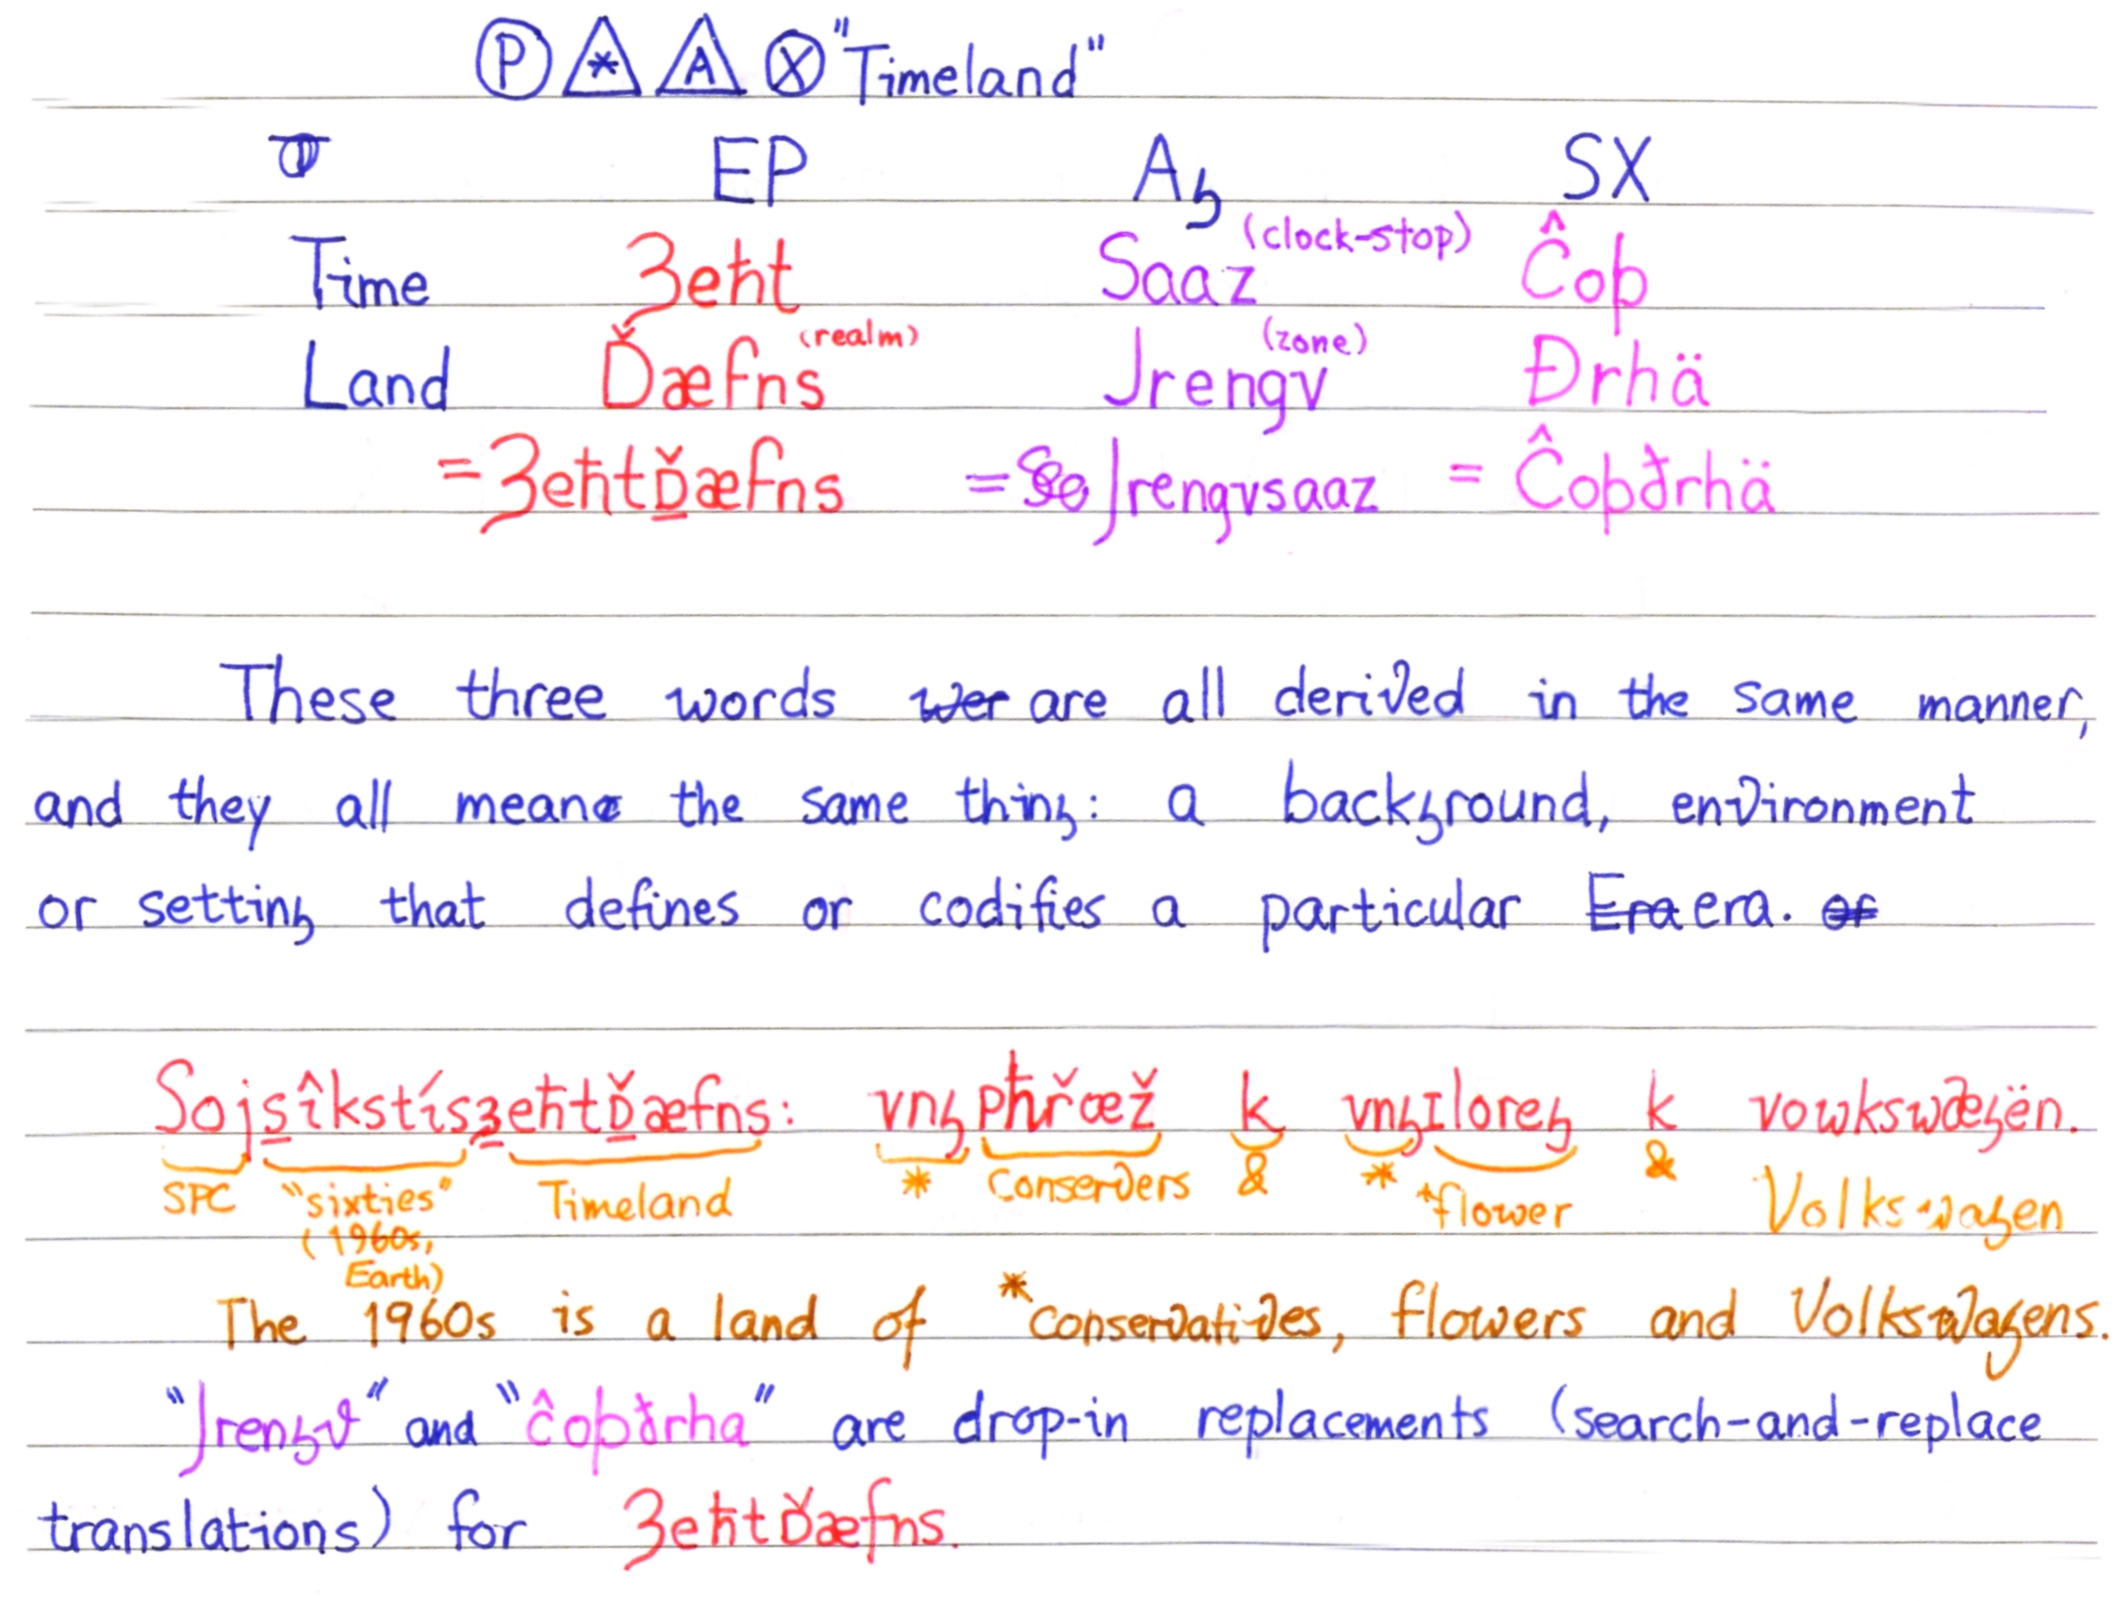 Ⓟ * A Ⓧ "Timeland"
EP Aɧ SX
Time Ʒeħt Saaz (clock-stop) Ĉoþ
Land Ďæfns (realm) Jrengv (zone) Đrhä
=ƷeħtĎæfns = Jrengvsaaz = Ĉoþðrhä
These three words wer are all derived in the same manner,
and they all mean the same thing: a background, environment
or setting that defines or codifies a particular Era era. or
SojsîkstísʒeħtĎæfns: vngpħřœž k vngɪloreg k vowkswægën.
SPC "sixties" Timeland * Conservers & * *flower & Volkswagen
(1960s,
Earth)
The 1960s is a land of *conservatives, flowers and Volkswagens.
"Jrengv" and "ĉoþðrha" are drop-in replacements (search-and-replace
translations) for ƷeħtĎæfns.